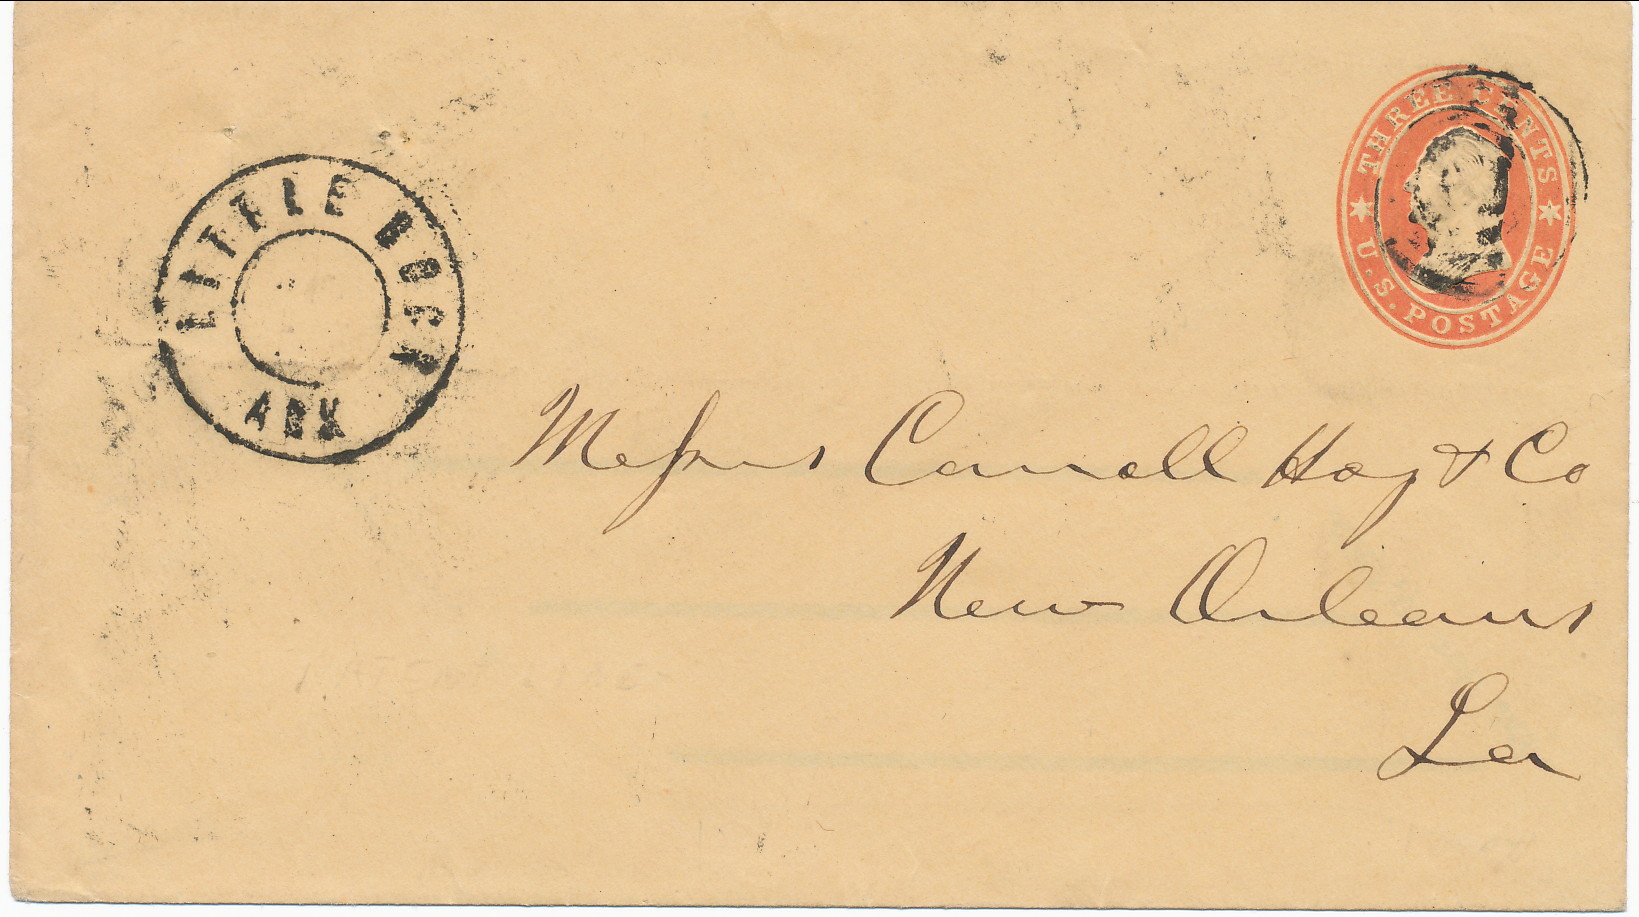 LITTLE ROCK
ARK
THREE CENTS
U.S. POSTAGE
Messrs Carroll Hoy & Co
New Orleans
La